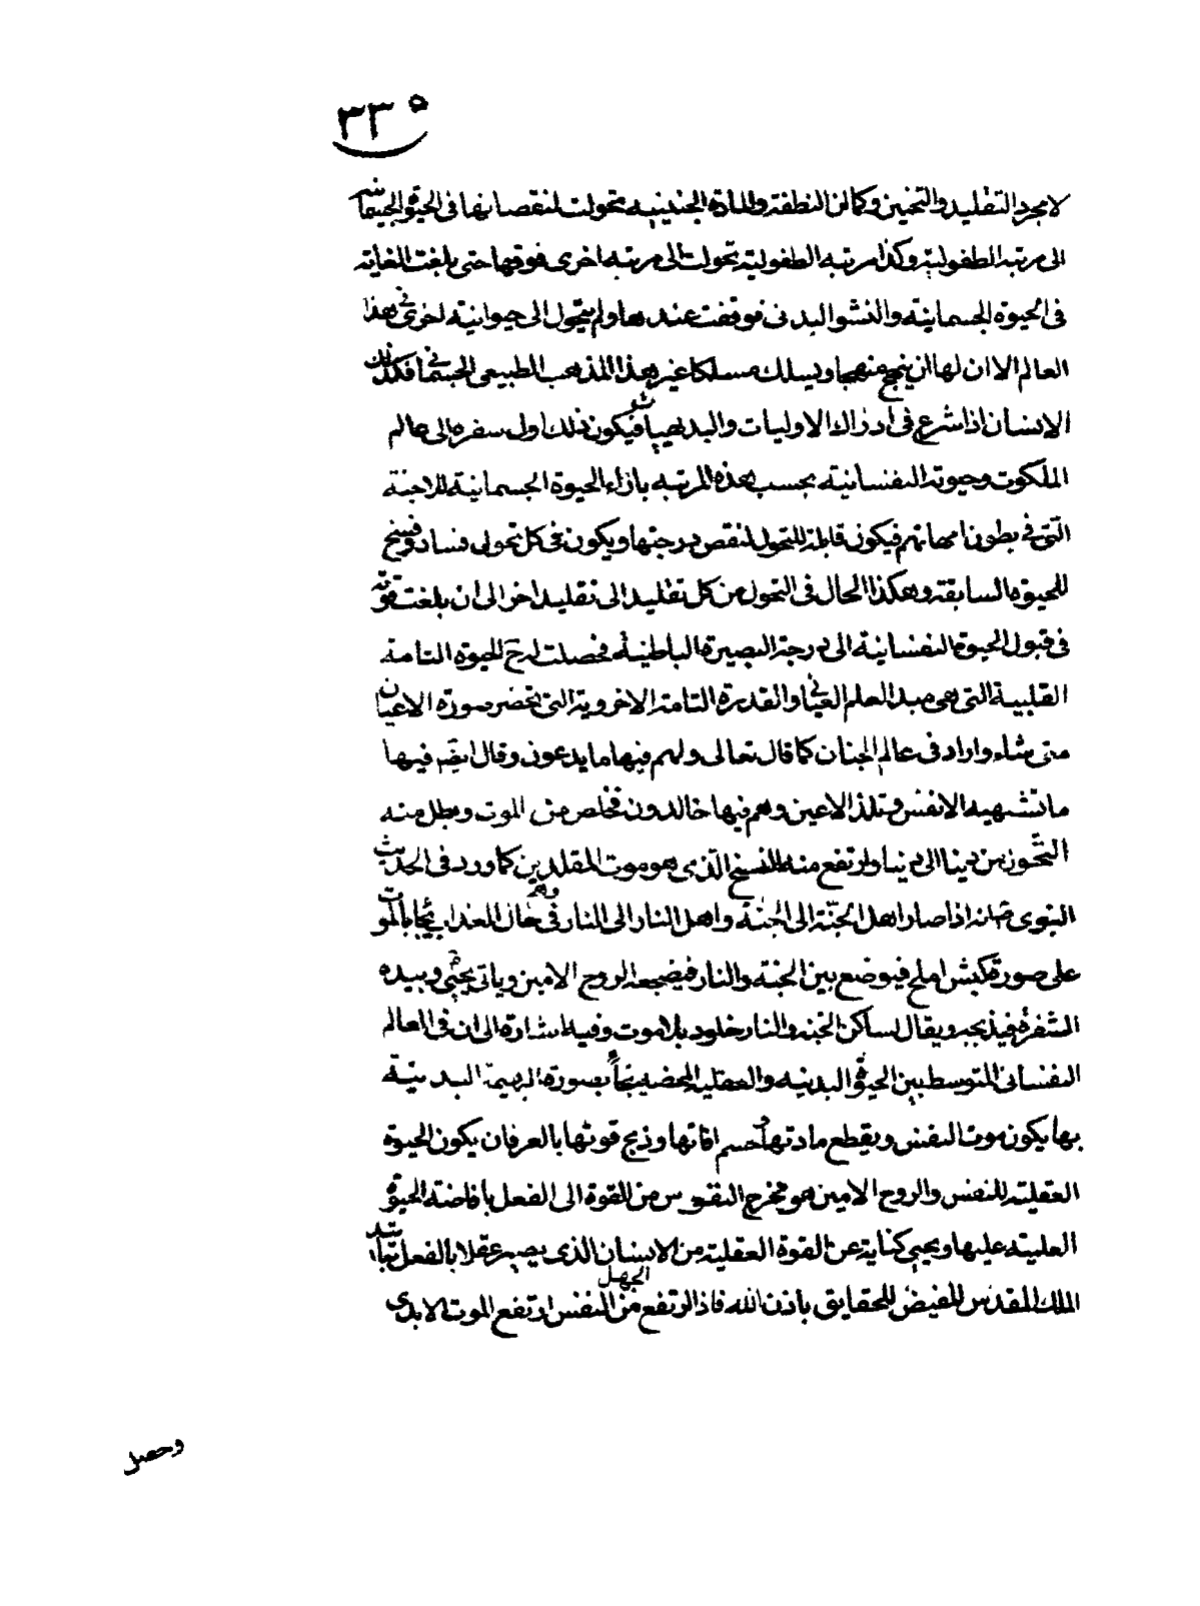 ٣٣٥
لا مجرد التقليد والتخمين وكما ان النطفة والمادة الجنينية تحولت لنقصانها فى الحيوة الجسمانية
الى مرتبة الطفولية وكذا مرتبة الطفولية تحولت الى مرتبة اخرى فوقها حتى بلغت الغاية
فى الحيوة الجسمانية والنشو البدنى فوقفت عندها ولم يتحول الى حيوانية اخرى فى هذا
العالم الا ان لها ان ينهج منهجا ويسلك مسلكا غير هذا المذهب الطبيعى الجسمانى فكذلك
الانسان اذا شرع فى ادراك الاوليات والبديهيات فيكون ذلك اول سفره الى عالم
الملكوت وحيوته النفسانية بحسب هذه المرتبة بازاء الحيوة الجسمانية للاجنة
التى فى بطون امهاتهم فيكون قابلة للتحول لنقص درجتها ويكون فى كل تحول فساد وفسخ
للحيوة السابقة وهكذا الحال فى التحول من كل تقليد الى تقليد اخر الى ان بلغت قوته
فى قبول الحيوة النفسانية الى درجة البصيرة الباطنية فحصلت له ح الحيوة التامة
القلبية التى هى مبدا العلم العيانى والقدرة التامة الاخروية التى تحضر صورة الاعيان
متى شاء واراد فى عالم الجنان كما قال تعالى ولهم فيها ما يدعون وقال ايضه فيها
ما تشتهيه الانفس وتلذ الاعين وهم فيها خالدون فخلص من الموت وبطل منه
التحوز من دينا الى دينا وارتفع منه الفسخ الذى هو موت المقلدين كما ورد فى الحديث
النبوى ص انه اذا صار اهل الجنة الى الجنة واهل النار الى النار وهم فى العذاب يجاء بالموت
على صورة كبش املح فيوضع بين الجنة والنار فيضجعه الروح الامين وياتى يحيى وبيده
الشفرة فيذبحه ويقال لساكن الجنة والنار خلود بلا موت وفيه اشارة الى ان فى العالم
النفسانى المتوسط بين الحيوة البدنية والعقلية المحضة بصورة البهيمة البدنية
بها يكون موت النفس وبقطع مادتها وحسم افاتها وذبح قوتها بالعرفان يكون الحيوة
العقلية للنفس والروح الامين هو مخرج النفوس من القوة الى الفعل بافاضته الحيوة
العلمية عليها ويحيى كناية عن القوة العقلية من الانسان الذى يصير عقلا بالفعل بتاييد
الملك المقدس المفيض للحقايق باذن الله فاذا ارتفع الجهل من النفس ارتفع الموت الابدى
وحصل